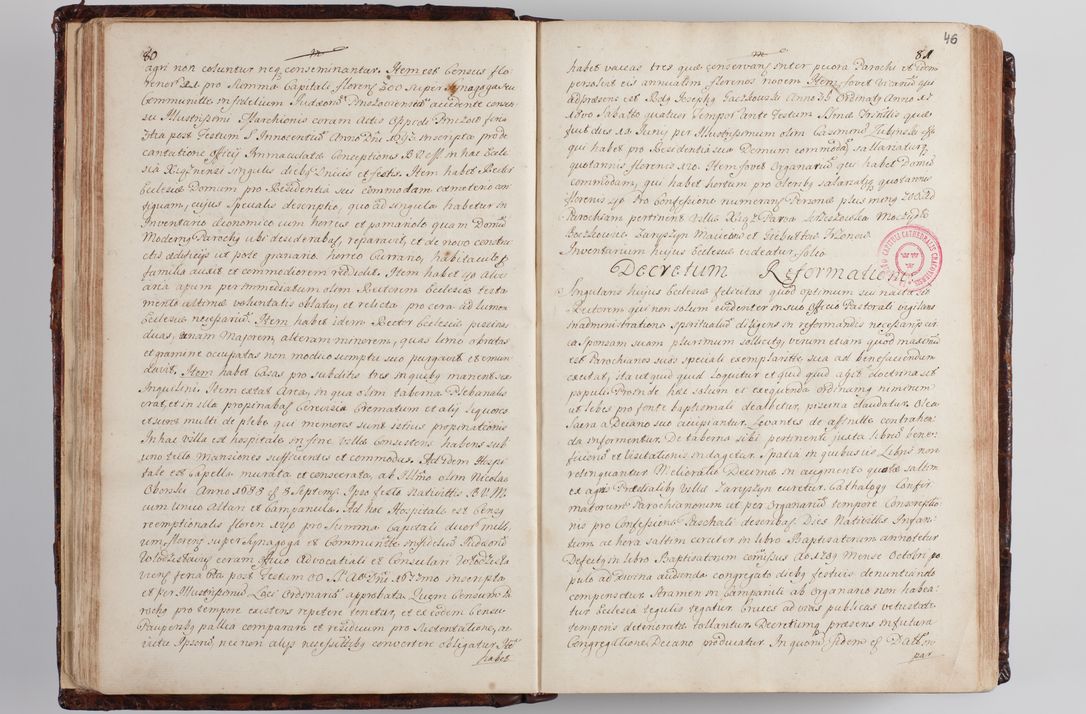 80
agri non coluntur neq conseminantur. Item est Census flo
renor 21 pro summa Capitali florens 300 super Synagoga seu
Communitte infidelium Judæor Pinczoviensiu accedente consen
su Illustrissimi Marchionis coram Actis Oppidi Pinczow feria
post Festum S Innocentium Anno Dni inscripta pro de
cantatione Officij Immaculatæ Conceptionis B V M in hac Eccle
sia Xięznensi singulis diebus Dnicis et festis. Item habet Rector
Ecclesiæ Domum pro Residentia sua commodam cæmeterio an
tiquam, cujus specialis descriptio, quo ad singula habetur in
Inventario œconomico cum horreis et pomariolo quam Domum
Modernus Parochus ubi desiderabat, reparavit, et de novo constru
ctis ædificijs ut pote granario, horreo Currario, habitaculo
familiæ auxit et commodiorem reddidit. Item habet 40 alve
aria apum per immediatum olim Rectorem Ecclesiæ testa
mento ultimæ voluntatis oblatu et relicta pro cera ad lumen
Ecclesiæ necessariu. Item habet idem Rector Ecclesiæ piscinas
duas, unam Majorem, alteram minorem, quas limo obrutas
et gramine occupatas non modico sumptu suo purgavit et emun
davit. Item habet Casas pro subditis tres in quibus manent sex
Inquilini. Item extat Area, in qua olim taberna Plebanalis
erat, et in illa propinabat Cerevisia Crematum et alij liquores
et sunt multi de plebe qui memores sunt istius propinationis
In hac Villa est hospitale in fine Villæ Consistens habens sub
uno tecto Mansiones sufficientes et commodas. Ad idem Hospi
tale est Capella murata et consecrata, ab Illmo olim Nicolao
Oborski Anno 1683 8 Septembr Ipso festo Nativittis B.V.M.
cum unico Altari et Campanula. Ad hoc Hospitale est Census
reemptionalis floren 140 pro Summa Capitali duor mill
um florens super Synagoga et Communitte infidelium Judæoru
coram officio Advocatiali et Consulari
feria post Festum OO. SS. Ao Dni 1677mo inscripta
et per Illustrissimum Loci Ordinariu approbata. Quem Censum Pa
rochus pro tempore existens repetere tenetur, et ex eodem Censu
Pauperibus pallia comparare et residuum pro Sustentatione, ac
victu Ipsoru nec non alijs necessittibus convertere obligatur. Ite
habet
46
81
habet vaccas tres quæ conservant inter pecora Parochi et idem
persolvit eis annuatim florenos novem Item fovet Vicariu qui
ad præsens est Rdus Josephus Gaczkowski Anno 25 Ordinatus Anno 17
1740 Sabbatho quatuor Tempor ante Festum Smæ Trinittis quæ
fuit dies 11 Junij per Illustrissimum olim Casimiru Łubinski Ep
qui habet pro Residentia sua Domum commodam sallariatur
quotannis florenis 120. Item fovet Organariu qui habet Domu
commodam, qui habet hortum pro oleribus salariatur quotannis
florenis 40 Pro Confessione numerant Personæ plus minus 700. Ad
Parochiam pertinent Villæ Xięz Parva
Boczkowice Zaryszyn
Inventarium hujus Ecclesiæ videatur folio
Decretum Reformationis
Singularis hujus Ecclesiæ felicitas quod optimum sui nacta sit
Rectorem, qui non solum evidenter in suo Officio Pastorali vigilans
in administratione spiritualiu diligens in reformandis necessarijs cir
ca Sponsam suam plurimum sollicitus, verum etiam quod maximu
est Parochianos suos speciali exemplaritte sua ad benefaciendum
excitat, ita ut quid quid loquitur et quid quid agit doctrina sit
populi. Proinde hæc solum et exequenda ordinamus nimirum
ut lebes pro fonte baptismali dealbetur, piscina claudatur. Olea
Sacra a Decano suo accipiantur. Levantes de affinitte contrahen
da informentur. De taberna sibi pertinente juxta libru bene
ficioru et Visitationis indagetur. Spatia in quibusvis Libris non
relinquantur. Melioratio Decimæ in augmento quotæ saltem
ex agris Prædialibus Villæ Zaryszyn curetur. Cathalogus Confir
matorum Parochianorum ut per Organariu tempore Conscriptio
nis pro Confessione Paschali describat. Dies Nativittis Infan
tium ac hora saltem circiter in libro Baptisatorum annotetur
Defectus in libro Baptisatorum comissus Ao 1739 Mense Octobri po
pulo ad divina audienda congregato diebus festivis denuntiando
compensetur Stramen in Campanili ab Organario non habea
tur Ecclesia tegulis tegatur Cruces ad vias publicas vetustate
temporis deteriorate tollantur. Decretumq præsens in futura
Congregatione Decano producatur. In quoru fidem Dat
par